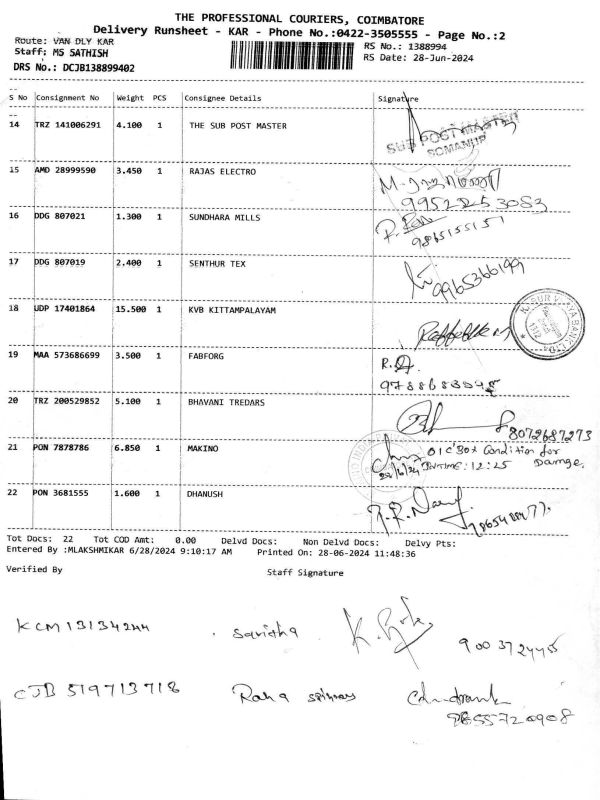 THE PROFESSIONAL COURIERS, COIMBATORE
Delivery Runsheet - KAR - Phone No.:0422-3505555 - Page No.:2
Route: VAN DLY KAR RS No.: 1388994
Staff: MS SATHISH RS Date: 28-Jun-2024
DRS No.: DCJB138899402
S No Consignment No Weight PCS Consignee Details Signature
14 TRZ 141006291 4.100 1 THE SUB POST MASTER
SUB POST MASTER
SOMANUR
15 AMD 28999590 3.450 1 RAJAS ELECTRO
9952253083
16 DDG 807021 1.300 1 SUNDHARA MILLS
9865155151
17 DDG 807019 2.400 1 SENTHUR TEX
9965366199
18 UDP 17401864 15.500 1 KVB KITTAMPALAYAM
19 MAA 573686699 3.500 1 FABFORG
R.
20 TRZ 200529852 5.100 1 BHAVANI TREDARS
8072687273
21 PON 7878786 6.850 1 MAKINO
Condition for
28/6/24 TIME: 12:25 Damge.
22 PON 3681555 1.600 1 DHANUSH
Tot Docs: 22 Tot COD Amt: 0.00 Delvd Docs: Non Delvd Docs: Delvy Pts:
Entered By :MLAKSHMIKAR 6/28/2024 9:10:17 AM Printed On: 28-06-2024 11:48:36
Verified By Staff Signature
KCM 13134244 Savitha
CJB 519713718